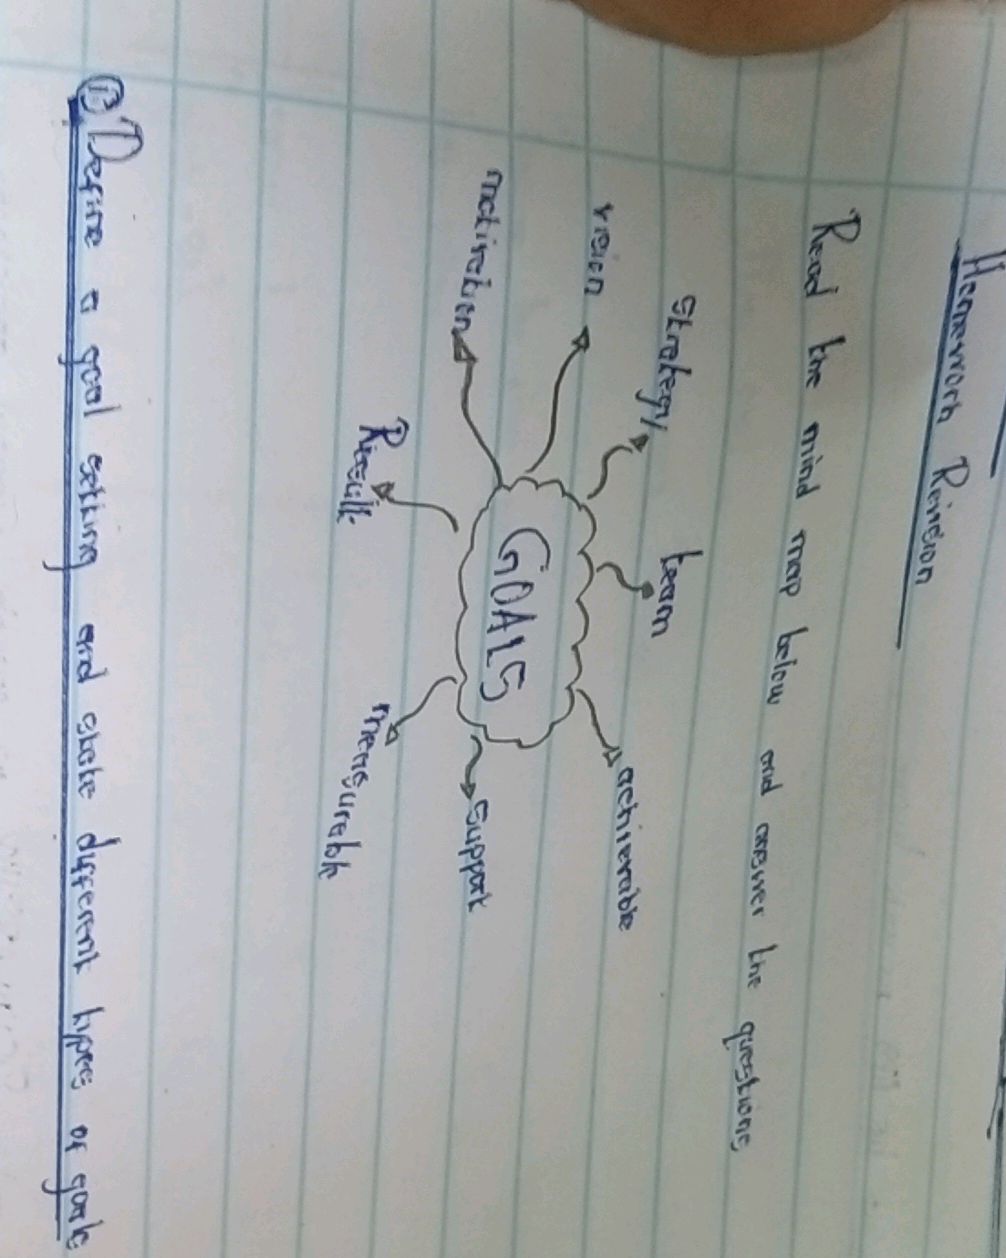 Homework Revision
Read the mind map below and answer the questions
strategy
team
vision
achievable
GOALS
motivation
support
Result
measurable
Define a goal setting and state different types of goals